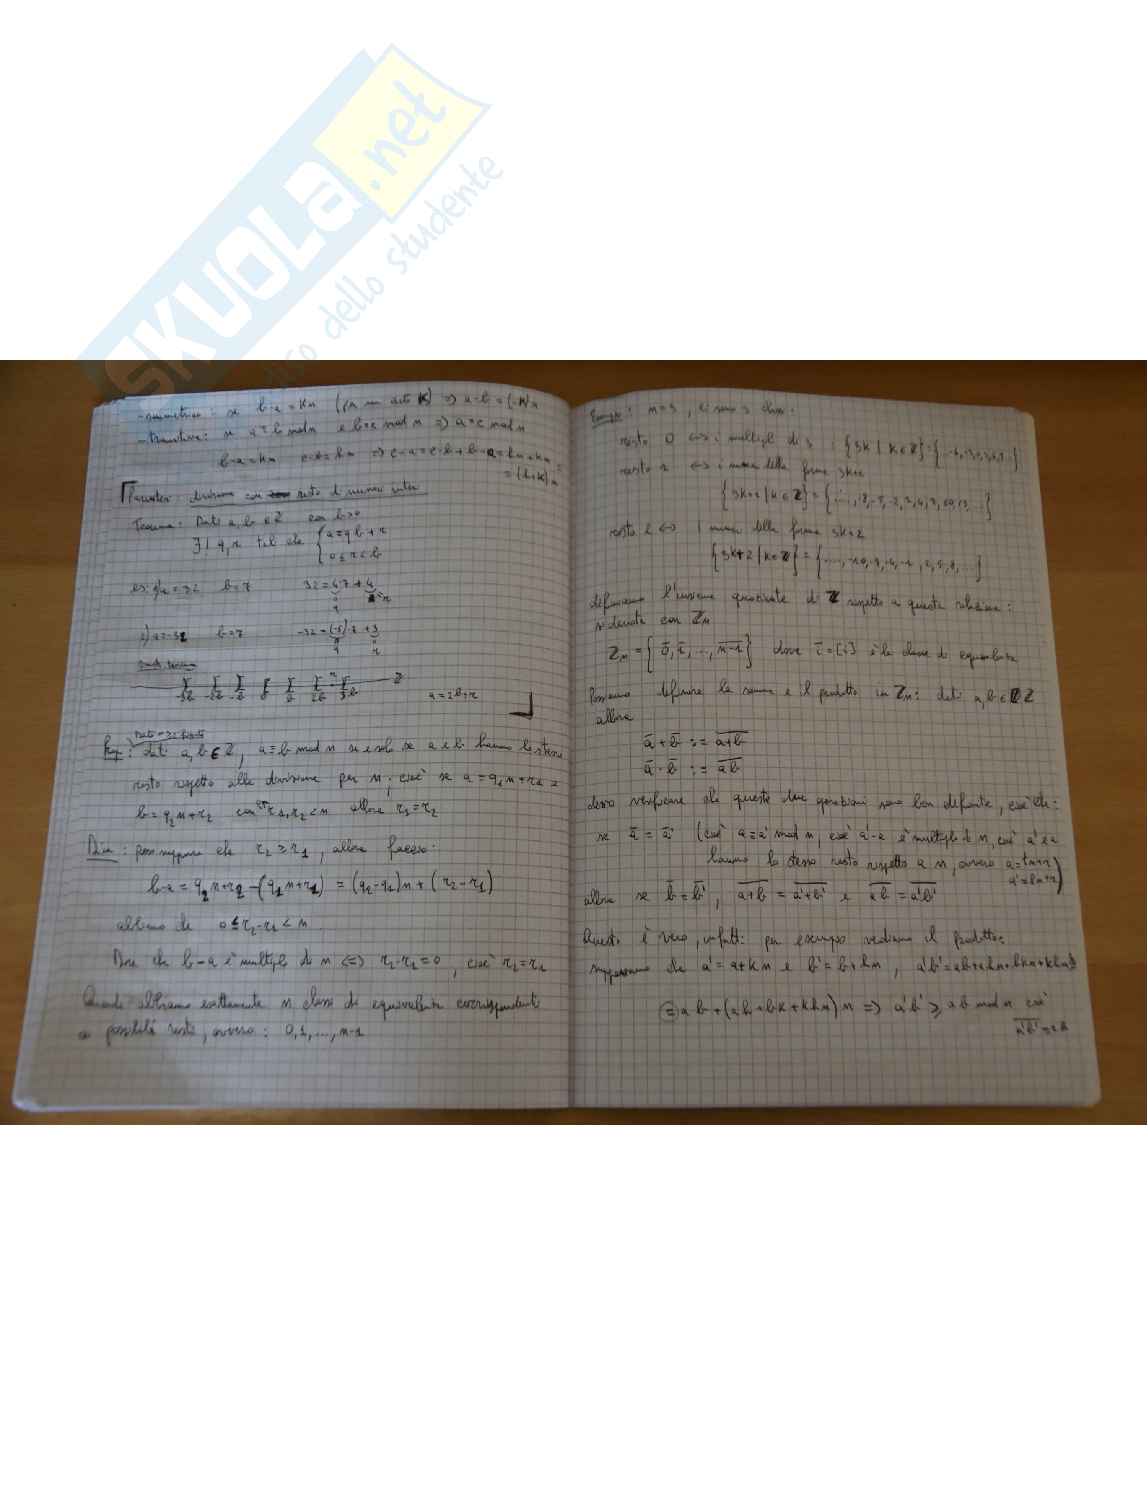 SKUOLA.net
dello studente
- simmetrica: se b-a = kn (per un certo k) => a-b = (-k)n
- transitiva: se a≡b mod n e b≡c mod n => a≡c mod n
b-a=kn c-b=hn => c-a=c-b+b-a=hn+kn=
=(h+k)n
divisione con resto di numeri interi
Teorema: Dati a, b ∈ Z con b>0
∃! q, r tali che { a=qb+r
0≤r<b
es: 1) a=32 b=7 32=4·7+4
q r
2) a=-32 b=7 -32=(-5)·7+3
q r
-3b -2b -b 0 b 2b 3b Z
a=2b+r
Prop: dati a, b ∈ Z, a≡b mod n se e solo se a e b hanno lo stesso
resto rispetto alla divisione per n, cioè se a=q₁n+r₁ e
b=q₂n+r₂ con 0≤r₁,r₂<n allora r₁=r₂
Dim: poss. supporre che r₂≥r₁, allora faccio:
b-a=q₂n+r₂-(q₁n+r₁)=(q₂-q₁)n+(r₂-r₁)
abbiamo che 0≤r₂-r₁<n
Dire che b-a è multiplo di n <=> r₂-r₁=0, cioè r₂=r₁
Quindi abbiamo esattamente n classi di equivalenza corrispondenti
a possibili resti, ovvero: 0,1,...,n-1
Esempio: n=3, ci sono 3 classi:
resto 0 <-> i multipli di 3: {3k | k∈Z}={...-6,-3,0,3,6,9...}
resto 1 <-> i numeri della forma 3k+1
{3k+1 | k∈Z}={...,-8,-5,-2,1,4,7,10,13,...}
resto 2 <-> i numeri della forma 3k+2
{3k+2 | k∈Z}={...,-10,-7,-4,-1,2,5,8,...}
definiamo l'insieme quoziente di Z rispetto a questa relazione:
si denota con Zn
Zn={0̅,1̅,...,n̅-̅1̅} dove i̅=[i] è la classe di equivalenza
Possiamo definire la somma e il prodotto in Zn: dati a,b∈Z
allora
a̅+b̅:=a̅+̅b̅
a̅·b̅:=a̅b̅
devo verificare che queste due operazioni sono ben definite, cioè che:
se a̅=a̅' (cioè a≡a' mod n, cioè a'-a è multiplo di n, cioè a' e a
hanno lo stesso resto rispetto a n, ovvero a=tn+r
a'=ln+r)
allora se b̅=b̅', a̅+̅b̅=a̅'̅+̅b̅'̅ e a̅b̅=a̅'̅b̅'̅
Questo è vero, infatti: per esempio vediamo il prodotto:
supponiamo che a'=a+kn e b'=b+hn, a'b'=ab+ahn+bkn+khn²
=ab+(ah+bk+khn)n => a'b'≡ab mod n cioè
a̅'̅b̅'̅=a̅b̅